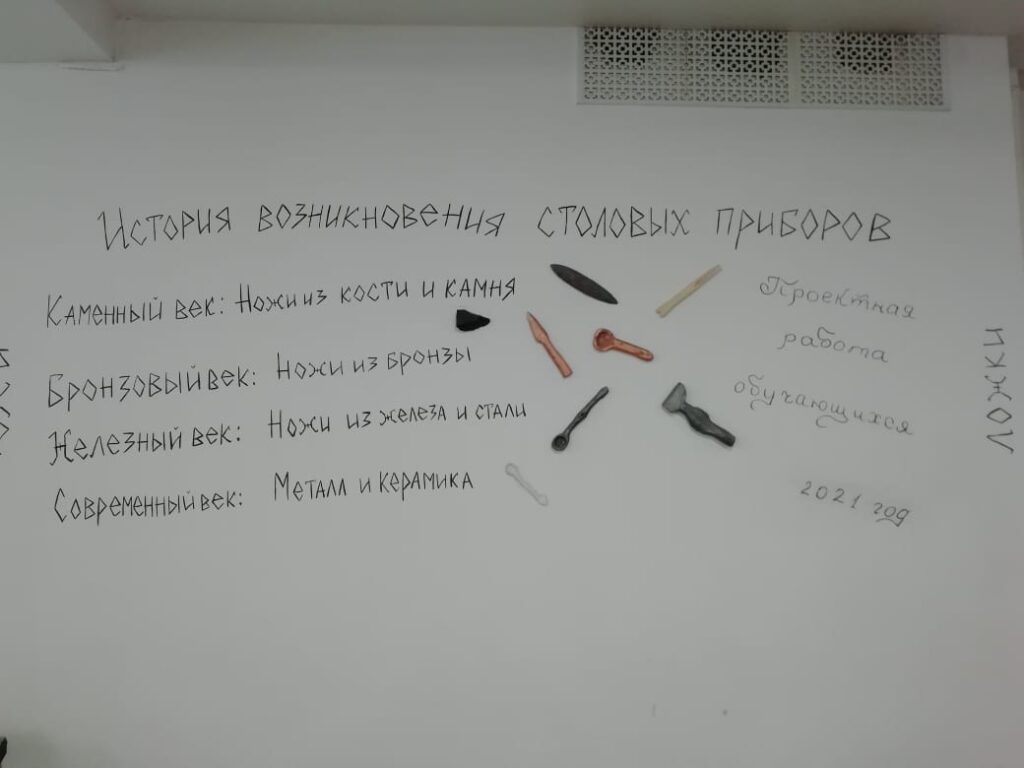 История возникновения столовых приборов
Каменный век: Ножи из кости и камня
Бронзовый век: Ножи из бронзы
Железный век: Ножи из железа и стали
Современный век: Металл и керамика
Проектная
работа
обучающихся
2021 год
ложки